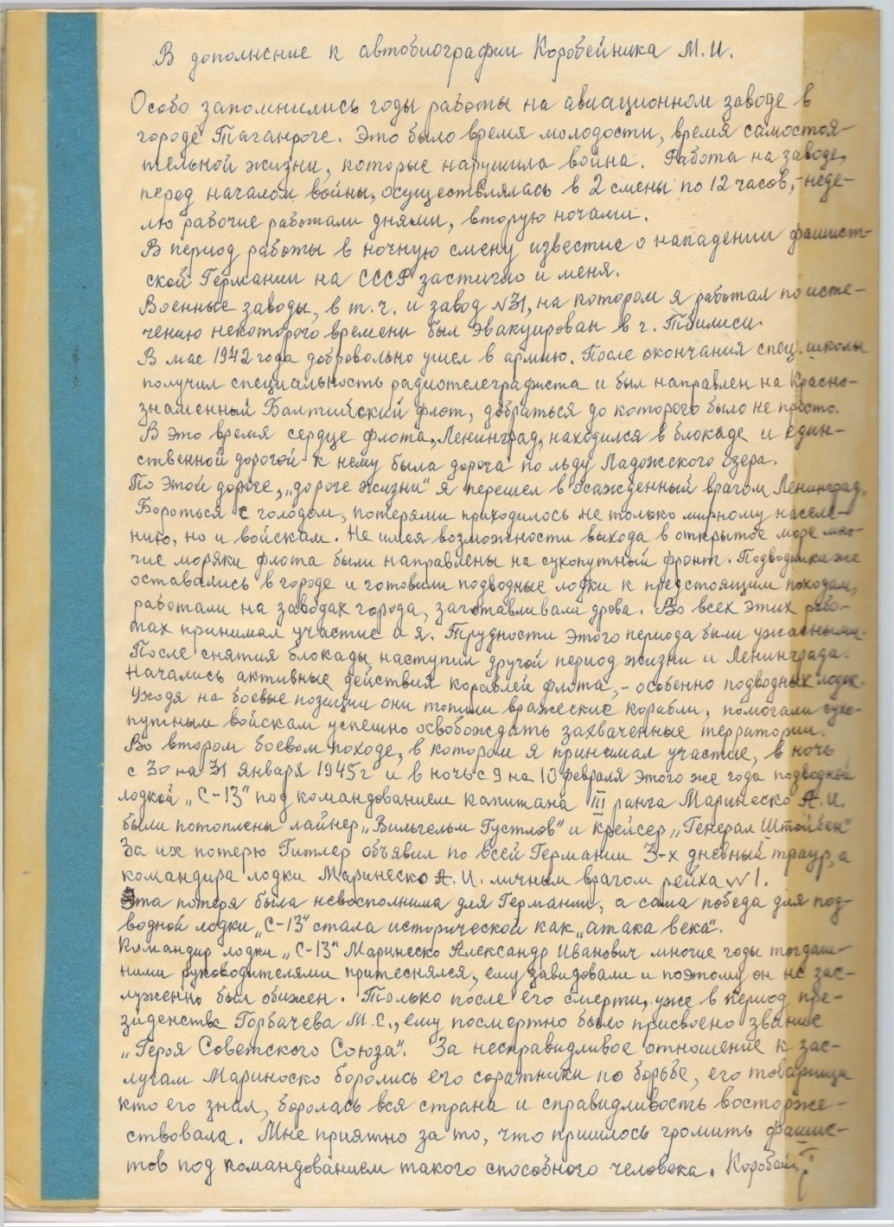 В дополнение к автобиографии Коробейника М.И.
Особо запомнились годы работы на авиационном заводе в
городе Таганроге. Это было время молодости, время самостоя-
тельной жизни, которые нарушила война. Работа на заводе,
перед началом войны, осуществлялась в 2 смены по 12 часов,- неде-
лю рабочие работали днями, вторую ночами.
В период работы в ночную смену известие о нападении фашист-
ской Германии на СССР застигло и меня.
Военные заводы, в т.ч. и завод №31, на котором я работал по исте-
чению некоторого времени был эвакуирован в г. Тбилиси.
В мае 1942 года добровольно ушел в армию. После окончания спец. школы
получил специальность радиотелеграфиста и был направлен на Красно-
знаменный Балтийский флот, добраться до которого было не просто.
В это время сердце флота, Ленинград, находился в блокаде и един-
ственной дорогой к нему была дорога по льду Ладожского озера.
По этой дороге, „дороге жизни" я перешел в осажденный врагом Ленинград.
Бороться с голодом, потерями приходилось не только мирному населе-
нию, но и войскам. Не имея возможности выхода в открытое море мно-
гие моряки флота были направлены на сухопутный фронт. Подводники же
оставались в городе и готовили подводные лодки к предстоящим походам,
работали на заводах города, заготавливали дрова. Во всех этих рабо-
тах принимал участие и я. Трудности этого периода были ужасными.
После снятия блокады, наступил другой период жизни и Ленинграда.
Начались активные действия кораблей флота,- особенно подводных лодок.
Уходя на боевые позиции они топили вражеские корабли, помогали сухо-
путным войскам успешно освобождать захваченные территории.
Во втором боевом походе, в котором я принимал участие, в ночь
с 30 на 31 января 1945г и в ночь с 9 на 10 февраля этого же года подводной
лодкой „С-13" под командованием капитана III ранга Маринеско А.И.
были потоплены лайнер „Вильгельм Густлов" и крейсер „Генерал Штойбен"
За их потерю Гитлер объявил по всей Германии 3-х дневный траур, а
командира лодки Маринеско А.И. личным врагом рейха №1.
Эта потеря была невосполнима для Германии, а сама победа для под-
водной лодки „С-13" стала исторической как „атака века".
Командир лодки „С-13" Маринеско Александр Иванович многие годы тогдаш-
ними руководителями притеснялся, ему завидовали и поэтому он не зас-
луженно был обижен. Только после его смерти, уже в период пре-
зиденства Горбачева М.С., ему посмертно было присвоено звание
„Героя Советского Союза". За несправидливое отношение к зас-
лугам Маринеско боролись его соратники по борьбе, его товарищи
кто его знал, боролась вся страна и справидливость восторже-
ствовала. Мне приятно за то, что пришлось громить фашис-
тов под командованием такого способного человека.